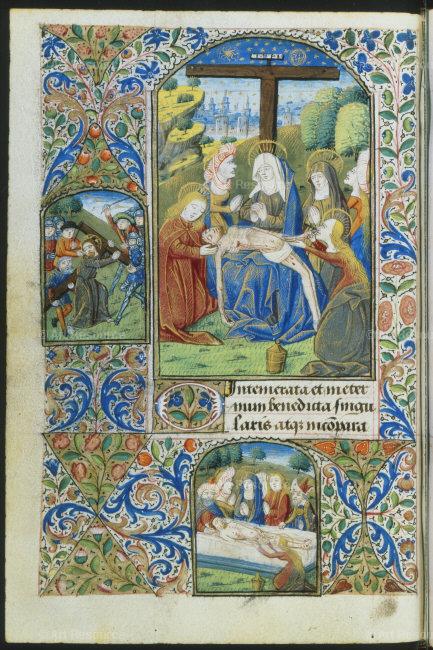 Intemerata et in eter
num benedicta singu
laris atqꝫ incōpara